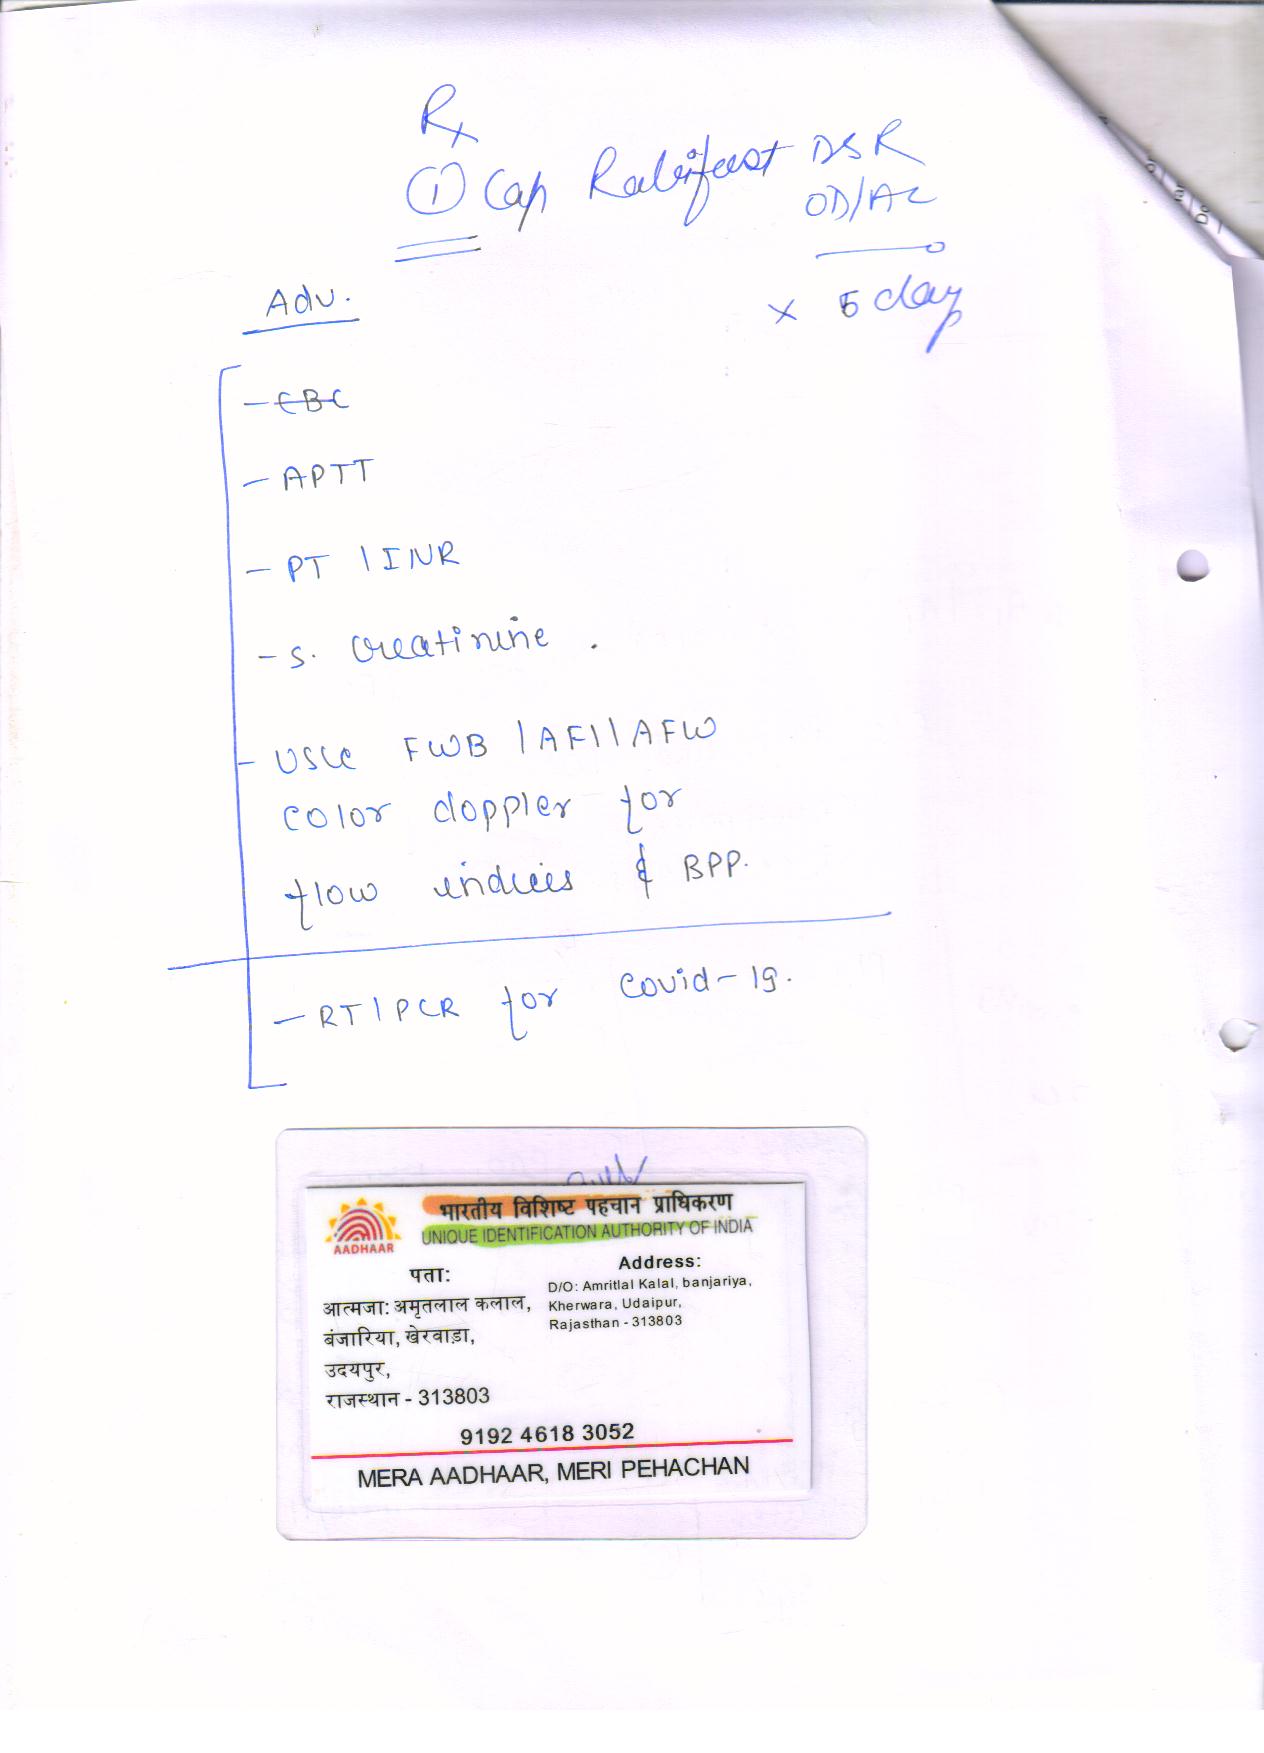 Rx
① Cap Rabifast DSR
OD/AC
x 5 day
Adv.
- CBC
- APTT
- PT \ INR
- S. Creatinine .
- USG FWB | AFI \ AFW
Color doppler for
flow indices & BPP.
- RT \ PCR for Covid-19.
भारतीय विशिष्ट पहचान प्राधिकरण
UNIQUE IDENTIFICATION AUTHORITY OF INDIA
AADHAAR
पता:
आत्मजा: अमृतलाल कलाल,
बंजारिया, खेरवाड़ा,
उदयपुर,
राजस्थान - 313803
Address:
D/O: Amritlal Kalal, banjariya,
Kherwara, Udaipur,
Rajasthan - 313803
9192 4618 3052
MERA AADHAAR, MERI PEHACHAN